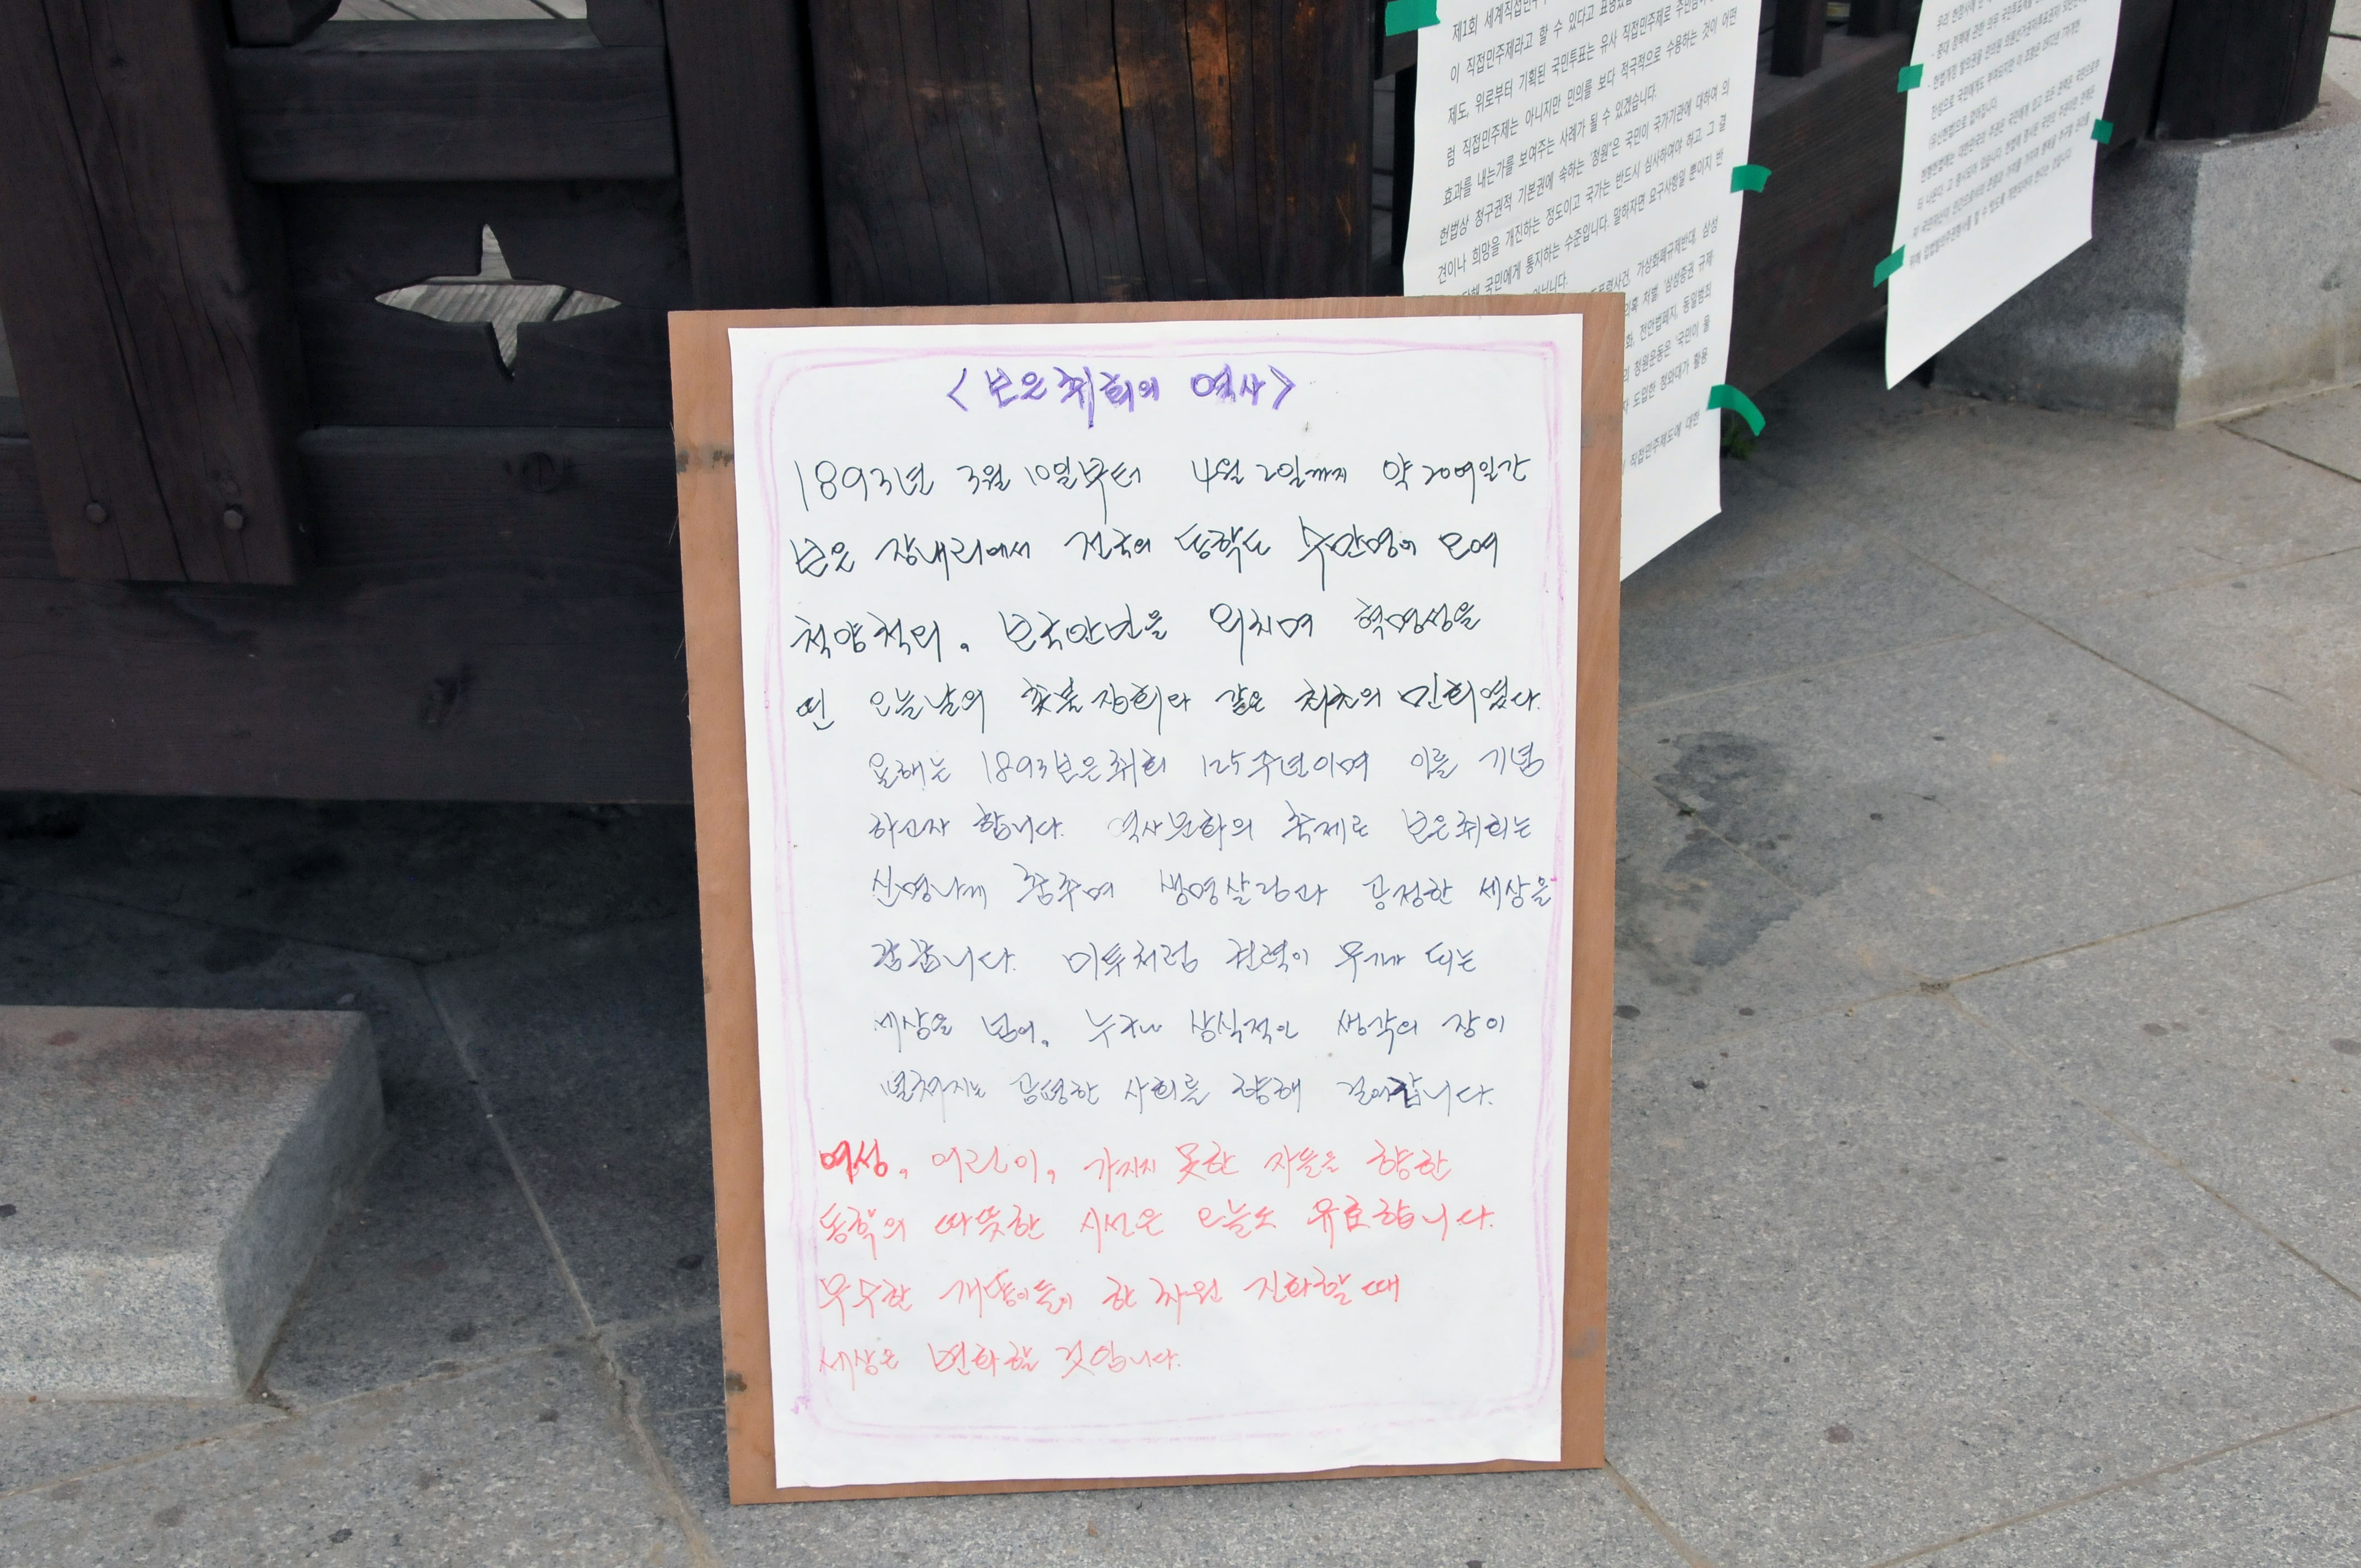 <보은취회의 역사>
1893년 3월 10일부터 4월 2일까지 약 20여일간
보은 장내리에서 전국의 동학도 수만명이 모여
척양척외, 보국안민을 외치며 혁명성을
띤 오늘날의 촛불집회와 같은 최초의 민회였다.
올해는 1893보은취회 125주년이며 이를 기념
하고자 합니다. 역사문화의 축제로 보은취회는
신명나게 춤추며 생명살림과 공정한 세상을
꿈꿉니다. 미투처럼 권력이 무기가 되는
세상을 넘어, 누구나 상식적인 생각의 장이
펼쳐지는 공평한 사회를 향해 걸어갑니다.
여성, 어린이, 가지지 못한 자들을 향한
동학의 따뜻한 시선은 오늘도 유효합니다.
무수한 개똥이들이 한 차원 진화할 때
세상은 변화할 것입니다.
제1회 세계직접민주
이 직접민주제라고 할 수 있다고 표방
제도, 위로부터 기획된 국민투표는 유사 직접민주제로
럼 직접민주제는 아니지만 민의를 보다 적극적으로 수용하는 것이 어떤
효과를 내는가를 보여주는 사례가 될 수 있겠습니다.
헌법상 청구권적 기본권에 속하는 '청원'은 국민이 국가기관에 대하여 의
견이나 희망을 개진하는 정도이고 국가는 반드시 심사하여야 하고 그 결
국민에게 통지하는 수준입니다. 말하자면 요구사항일 뿐이지 반
아닙니다.
가상화폐규제반대, 삼성
처벌, 삼성증권 규제
전안법폐지, 동일범죄
청원운동은 '국민이 물
도입한 청와대가 활용
직접민주제도에 대한